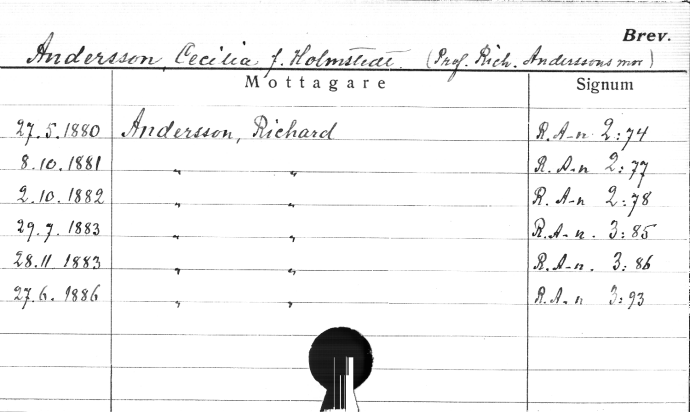 Brev.
Andersson, Cecilia f. Holmstedt. (Prof. Rich. Anderssons mor)
Mottagare Signum
27.5.1880 Andersson, Richard R.A-n 2:74
8.10.1881 " " R.A-n 2:77
2.10.1882 " " R.A-n 2:78
29.7.1883 " " R.A-n. 3:85
28.11 1883 " " R.A-n. 3:86
27.6.1886 " " R.A-n 3:93